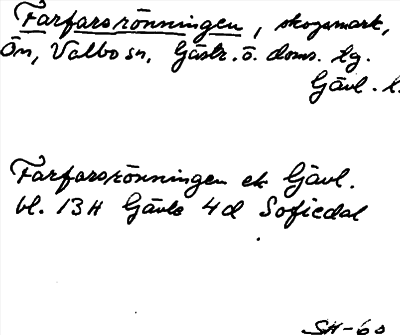 Farfarsrönningen, skogsmark,
Ön, Valbo sn, Gästr. ö. doms. tg.
Gävl. l.
Farfarsrönningen ek Gävl.
bl. 13H Gävle 4d Sofiedal
SH-60